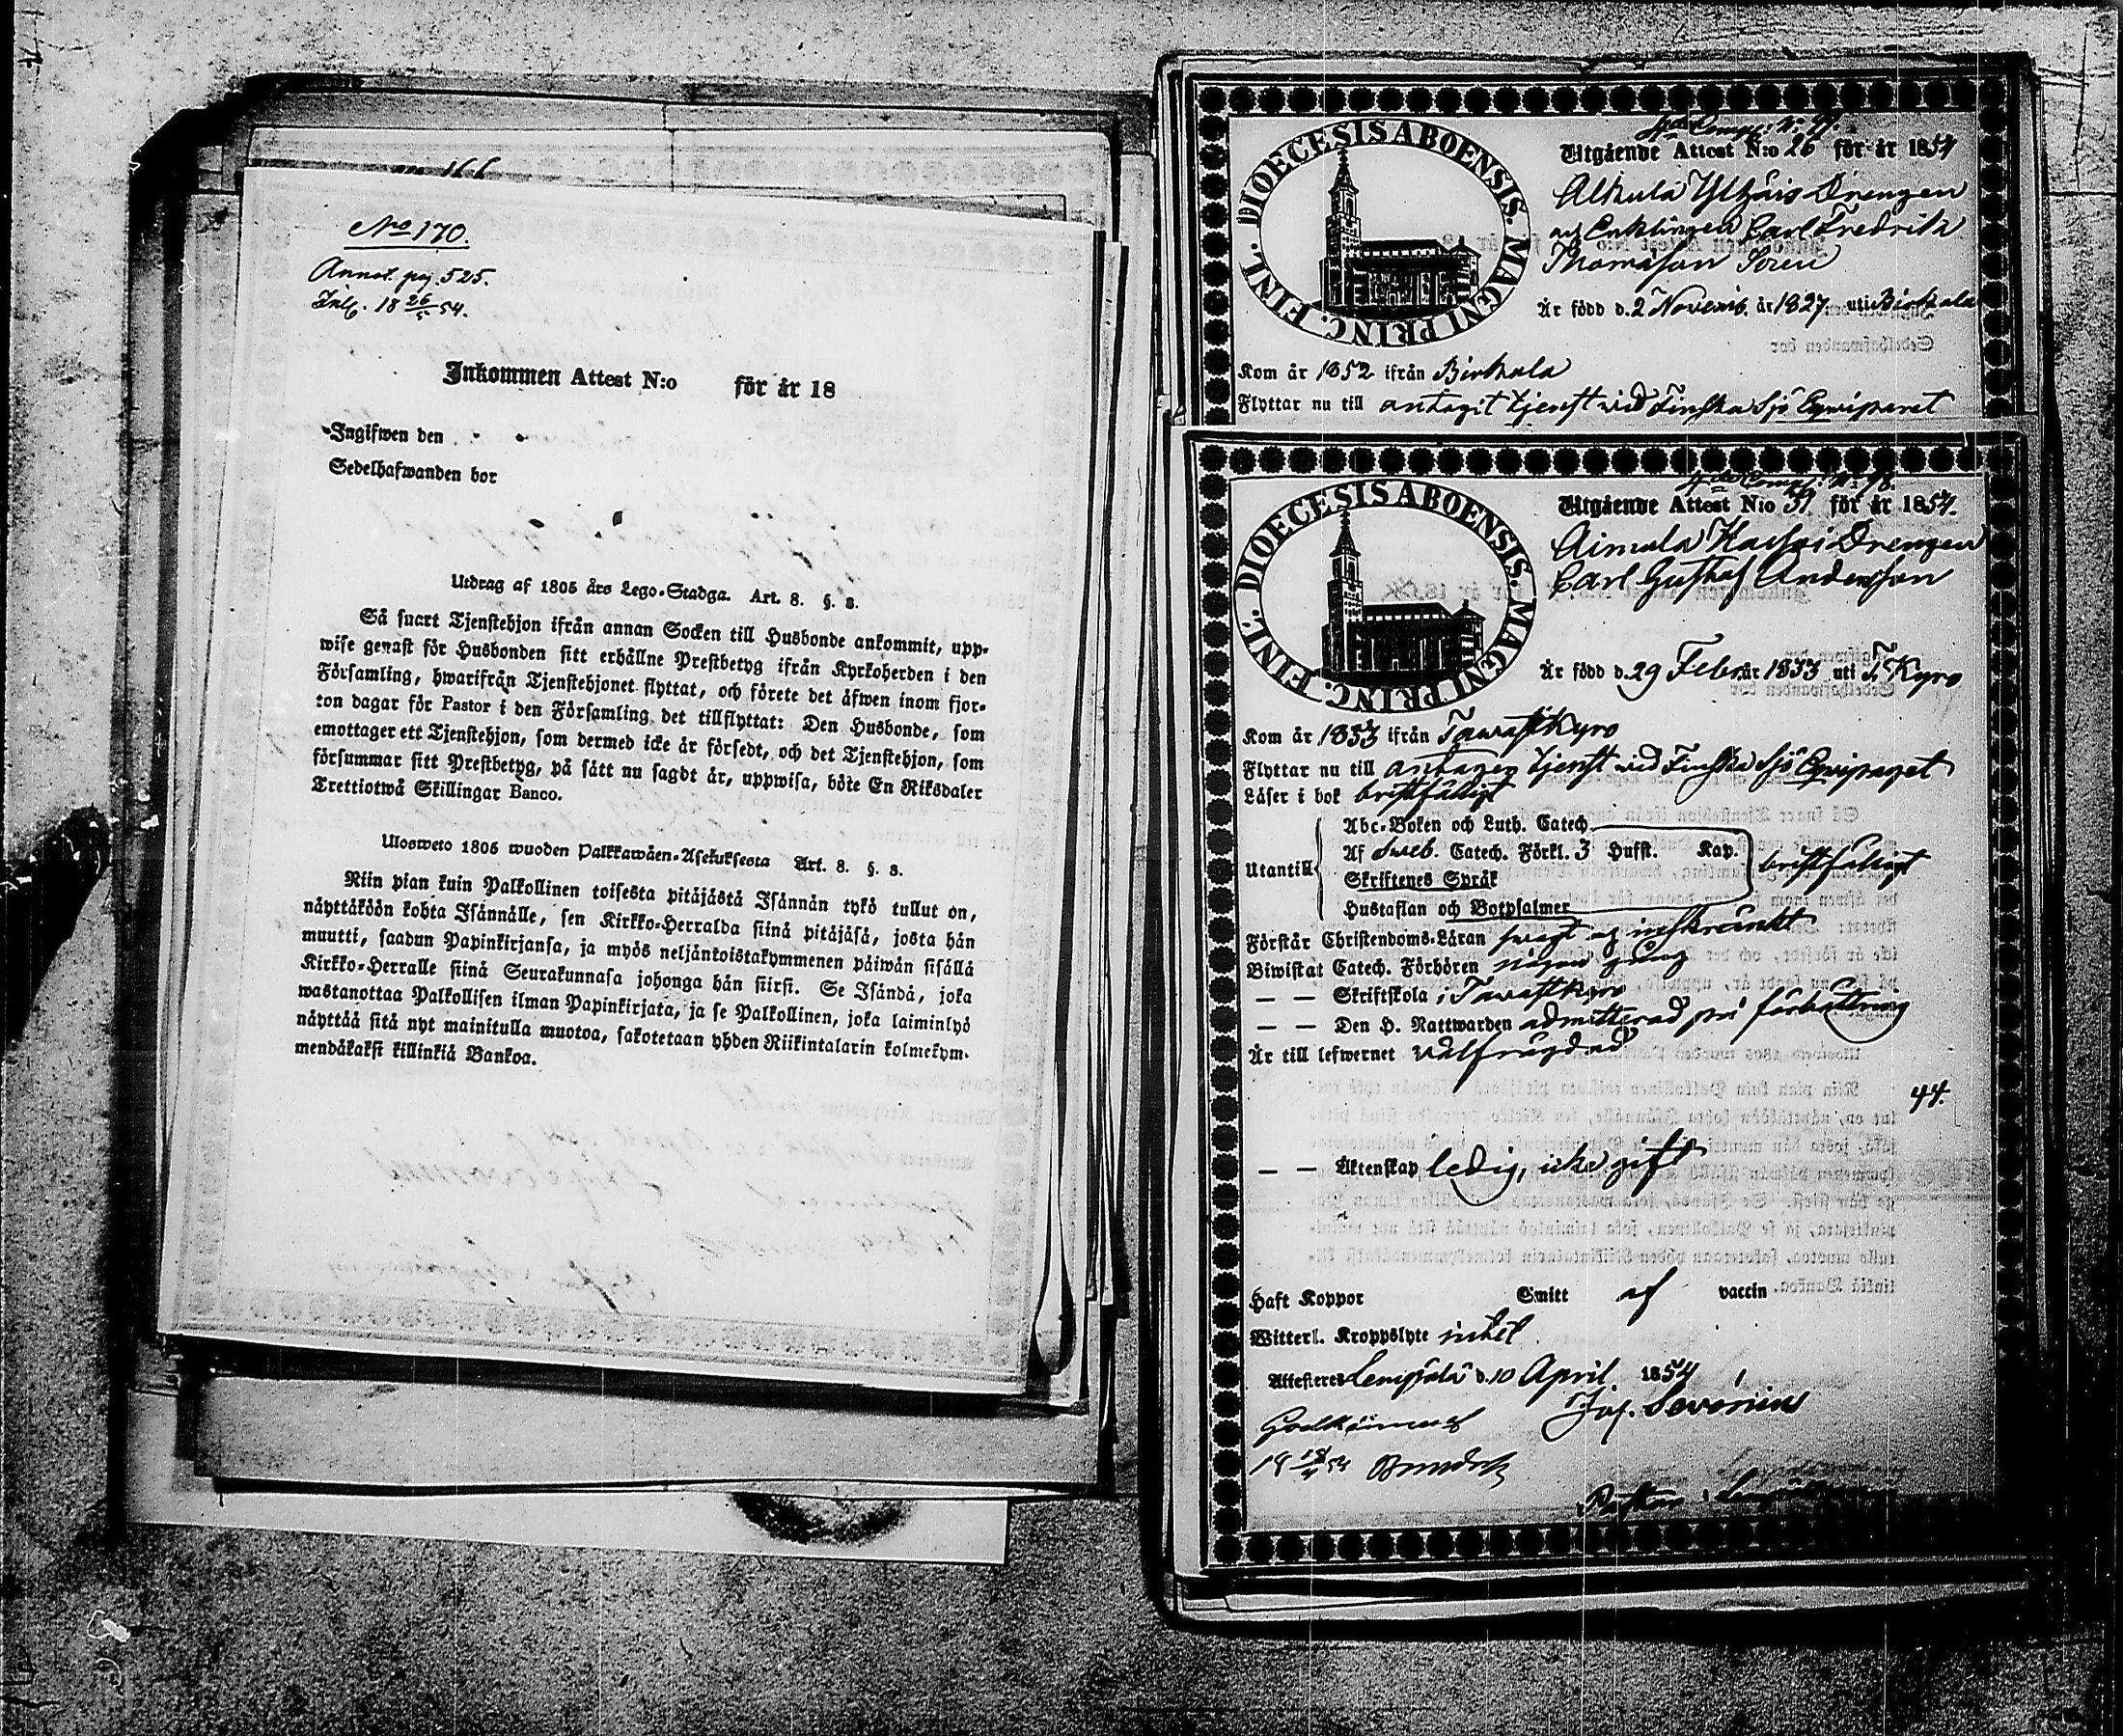 No 170.
Annot. pag. 525.
Inlc. 18 26/5 54.
Inkommen Attest N:o för år 18
Ingifwen den
Sedelhafwanden bor
Utdrag af 1805 års Lego-Stadga. Art. 8. §. 8.
Så snart Tjenstehjon ifrån annan Socken till Husbonde ankommit, upp-
wise genast för Husbonden sitt erhållne Prestbetyg ifrån Kyrkoherden i den
Församling, hwarifrån Tjenstehjonet flyttat, och förete det äfwen inom fjor-
ton dagar för Pastor i den Församling det tillflyttat: Den Husbonde, som
emottager ett Tjenstehjon, som dermed icke är försedt, och det Tjenstehjon, som
försummar sitt Prestbetyg, på sätt nu sagdt är, uppwisa, böte En Riksdaler
Trettiotwå Skillingar Banco.
Ulosweto 1805 wuoden Palkkawäen-Asetuksesta Art. 8. §. 8.
Niin pian kuin Palkollinen toisesta pitäjästä Isännän tykö tullut on,
näyttäköön kohta Isännälle, sen Kirkko-Herralda siinä pitäjäsä, josta hän
muutti, saadun Papinkirjansa, ja myös neljäntoistakymmenen päiwän sisällä
Kirkko-Herralle siinä Seurakunnasa johonga hän siirsi. Se Isändä, joka
wastanottaa Palkollisen ilman Papinkirjata, ja se Palkollinen, joka laiminlyö
näyttää sitä nyt mainitulla muotoa, sakotetaan yhden Riikintalarin kolmekym-
mendäkaksi killinkiä Bankoa.
DIOECESIS ABOENSIS. MAGNI PRINC. FINL.
Comp: No 97.
Utgående Attest N:o 26 för år 1854
Alkula Yltäis Drengen
Enklingen Carl Fredrik
Thomasson Soren
Är född d. 2 Novemb. år 1827 uti Birkala
Kom år 1852 ifrån Birkala
Flyttar nu till antagit tjenst wid Finska Sjö Equipaget
DIOECESIS ABOENSIS. MAGNI PRINC. FINL.
Comp: No 98.
Utgående Attest N:o 39 för år 1854.
Aimala Drengen
Carl Gustaf Andersson
Är född d. 29 Febr. år 1833 uti T. Kyro
Kom år 1853 ifrån Tawastkyro
Flyttar nu till antagen tjenst wid Finska Sjö Equipaget
Läser i bok bristfälligt
Abc-Boken och Luth. Catech.
Utantill Af Sweb. Catech. Förkl. 3 Hufst. Kap. bristfälligt
Skriftenes Språk
Hustaflan och Botpsalmer
Förstår Christendoms-Läran swagt og inskränkt
Biwistat Catech. Förhören någon gång
— — Skriftskola i Tawastkyro
— — Den H. Nattwarden admitterad på förbättring
Är till lefwernet välfrägdad
44.
— — Äktenskap ledig, icke gift
Haft Koppor Smitt af vaccin
Witterl. Kroppslyte intet
Attesteres Lempäälä d. 10 April 1854
Jos. Sevonius
Godkännes
18 54
Pastor i